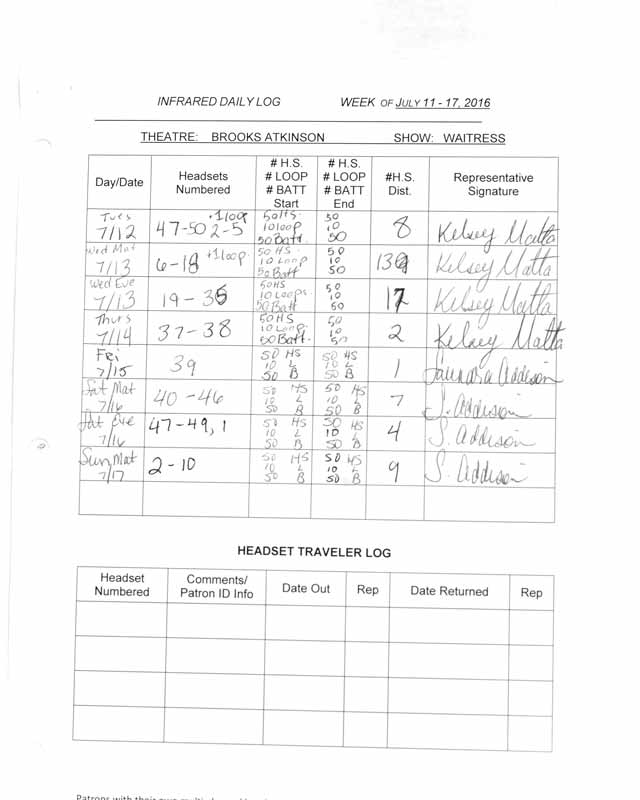 INFRARED DAILY LOG WEEK OF JULY 11 - 17, 2016
THEATRE: BROOKS ATKINSON SHOW: WAITRESS
Day/Date Headsets Numbered # H.S. # LOOP # BATT Start # H.S. # LOOP # BATT End #H.S. Dist. Representative Signature
Tues 7/12 47-50 2-5 +1loop 50HS 10loop 50Batt. 50 10 50 8 Kelsey Matta
Wed Mat 7/13 6-18 +1loop 50HS 10 Loop 50 Batt 50 10 50 Kelsey Matta
Wed Eve 7/13 19-35 50HS 10 Loops 50Batt 50 10 50 17 Kelsey Matta
Thurs 7/14 37-38 50HS 10 Loop 50Batt. 50 10 50 2 Kelsey Matta
Fri 7/15 39 50 HS 10 L 50 B 50 HS 10 L 50 B 1 Saundra Addison
Sat Mat 7/16 40-46 50 HS 10 L 50 B 50 HS 10 L 50 B 7 S. Addison
Sat Eve 7/16 47-49, 1 50 HS 10 L 50 B 50 HS 10 L 50 B 4 S. Addison
Sun Mat 7/17 2-10 50 HS 10 L 50 B 50 HS 10 L 50 B 9 S. Addison
HEADSET TRAVELER LOG
Headset Numbered Comments/ Patron ID Info Date Out Rep Date Returned Rep